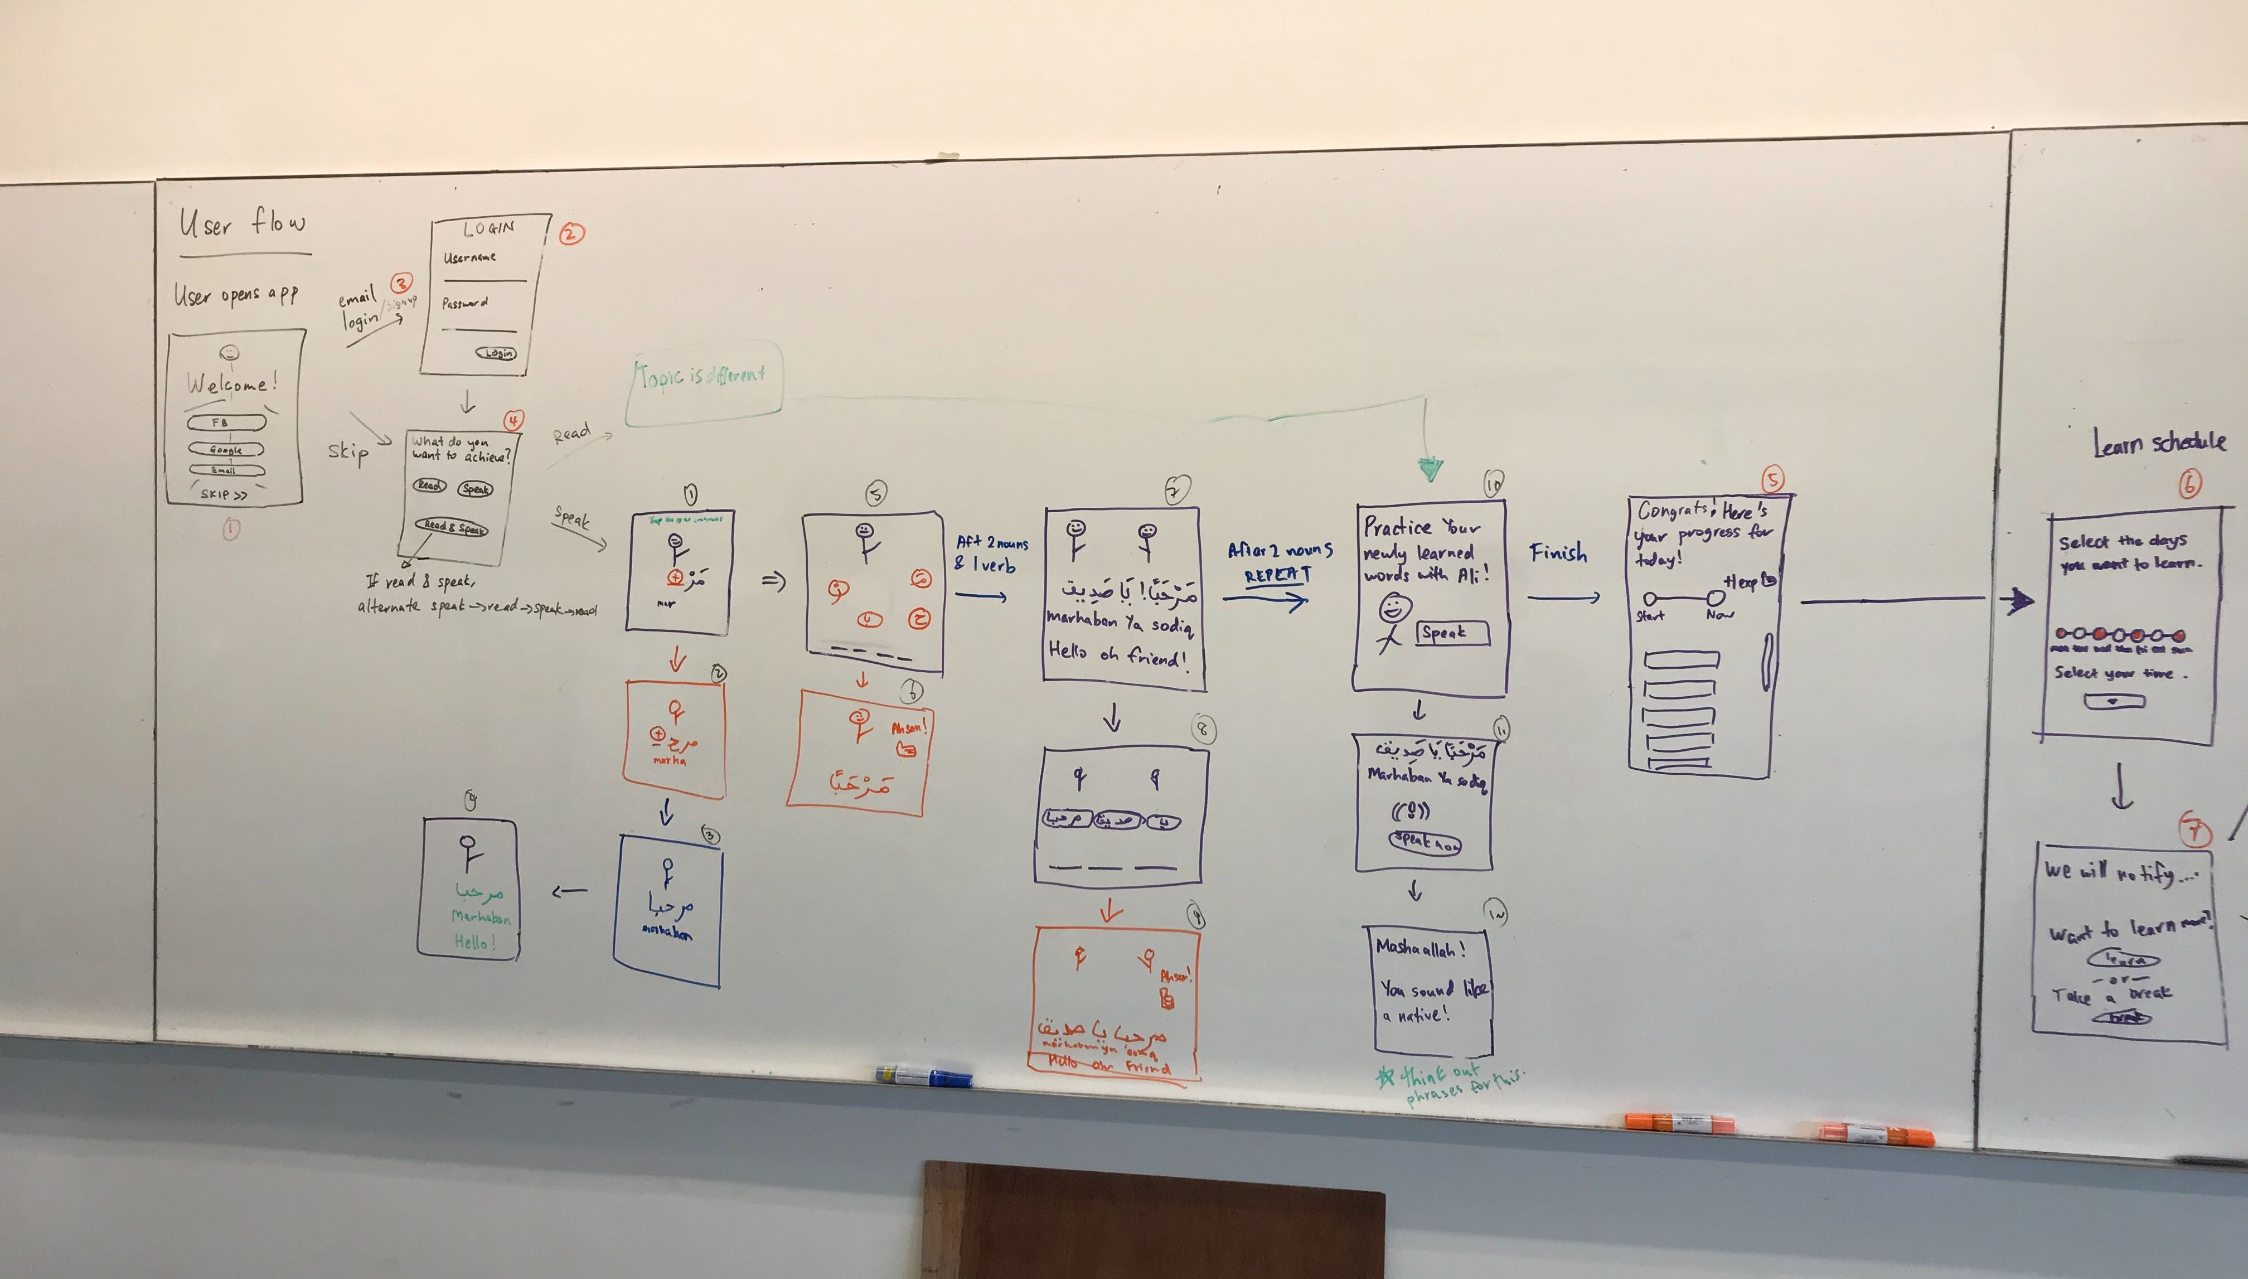 User flow
User opens app
Welcome!
FB
Google
Email
SKIP >>
1
email
login/signup
3
Skip
LOGIN
2
Username
Password
Login
4
What do you
want to achieve?
Read
Speak
Read & Speak
If read & speak,
alternate speak → read → speak → read
Read
Topic is different
Speak
1
مَرْ
mar
2
مرح
marha
3
مرحبا
marhaban
4
مرحبا
Marhaban
Hello!
5
مَرْحَبًا
6
Ahsan!
Aft 2 nouns
& 1 verb
7
مَرْحَبًا! يَا صَدِيق
marhaban Ya sodiq
Hello oh friend!
8
مرحبا
صديق
يا
9
Ahsan!
مرحبا يا صديق
marhaban ya sodiq
Hello ohr Friend
After 2 nouns
REPEAT
10
Practice Your
newly learned
words with Ali!
Speak
11
مَرْحَبًا يَا صَدِيق
Marhaban Ya sodiq
Speak now
12
Mashaallah!
You sound like
a native!
think out
phrases for this.
Finish
5
Congrats! Here's
your progress for
today!
+1 exp
Start
Now
Learn schedule
6
Select the days
you want to learn.
mon tue wed thu fri sat sun
Select your time.
7
We will notify....
Want to learn more?
learn
- or -
Take a break
break